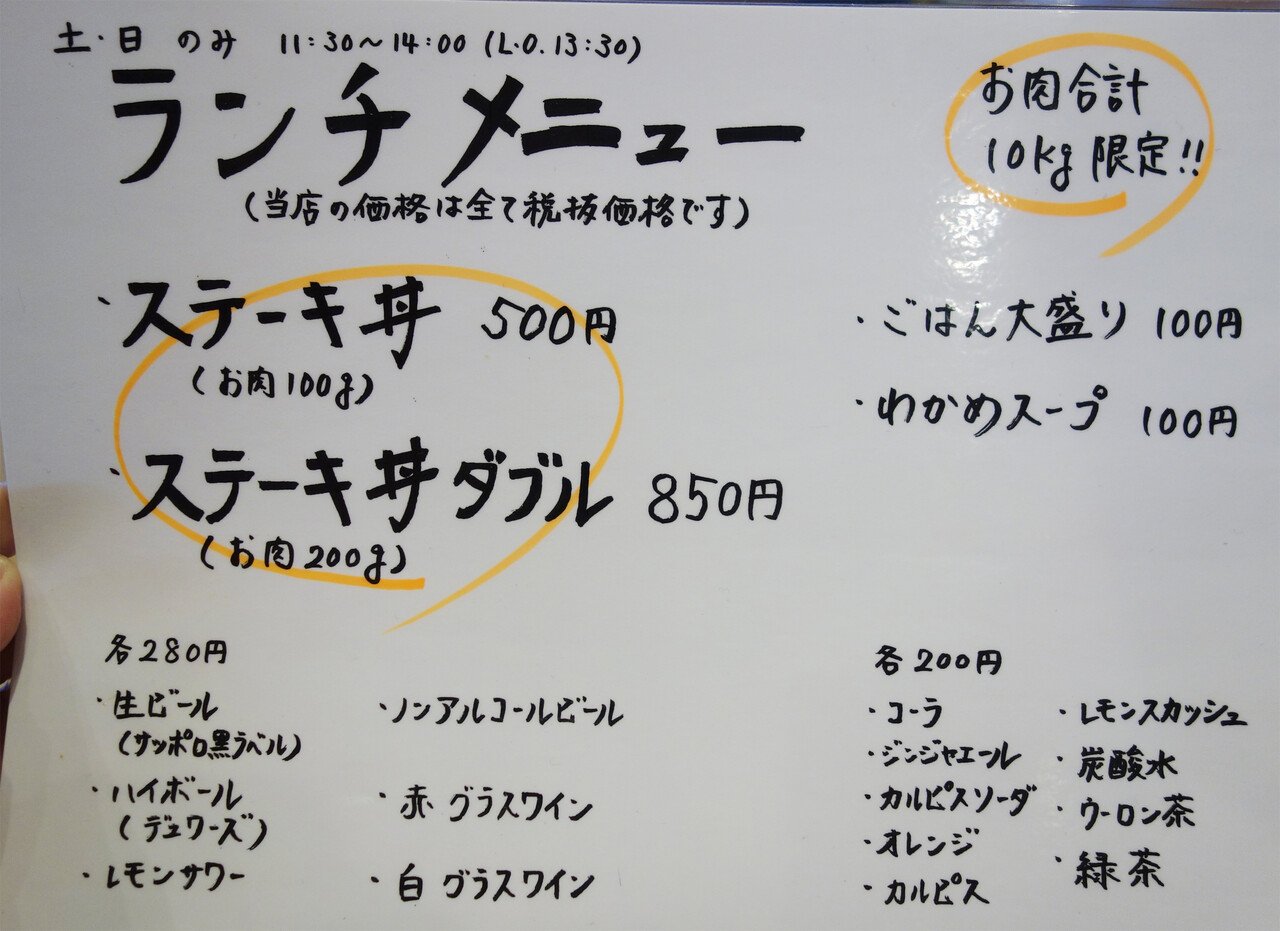 土・日 のみ 11:30～14:00 (L.O. 13:30)
ランチメニュー
(当店の価格は全て税抜価格です)
お肉合計
10kg 限定!!
・ステーキ丼 500円
(お肉100g)
・ステーキ丼ダブル 850円
(お肉200g)
・ごはん大盛り 100円
・わかめスープ 100円
各280円
・生ビール
(サッポロ黒ラベル)
・ハイボール
(デュワーズ)
・レモンサワー
・ノンアルコールビール
・赤 グラスワイン
・白 グラスワイン
各200円
・コーラ
・ジンジャエール
・カルピスソーダ
・オレンジ
・カルピス
・レモンスカッシュ
・炭酸水
・ウーロン茶
・緑茶